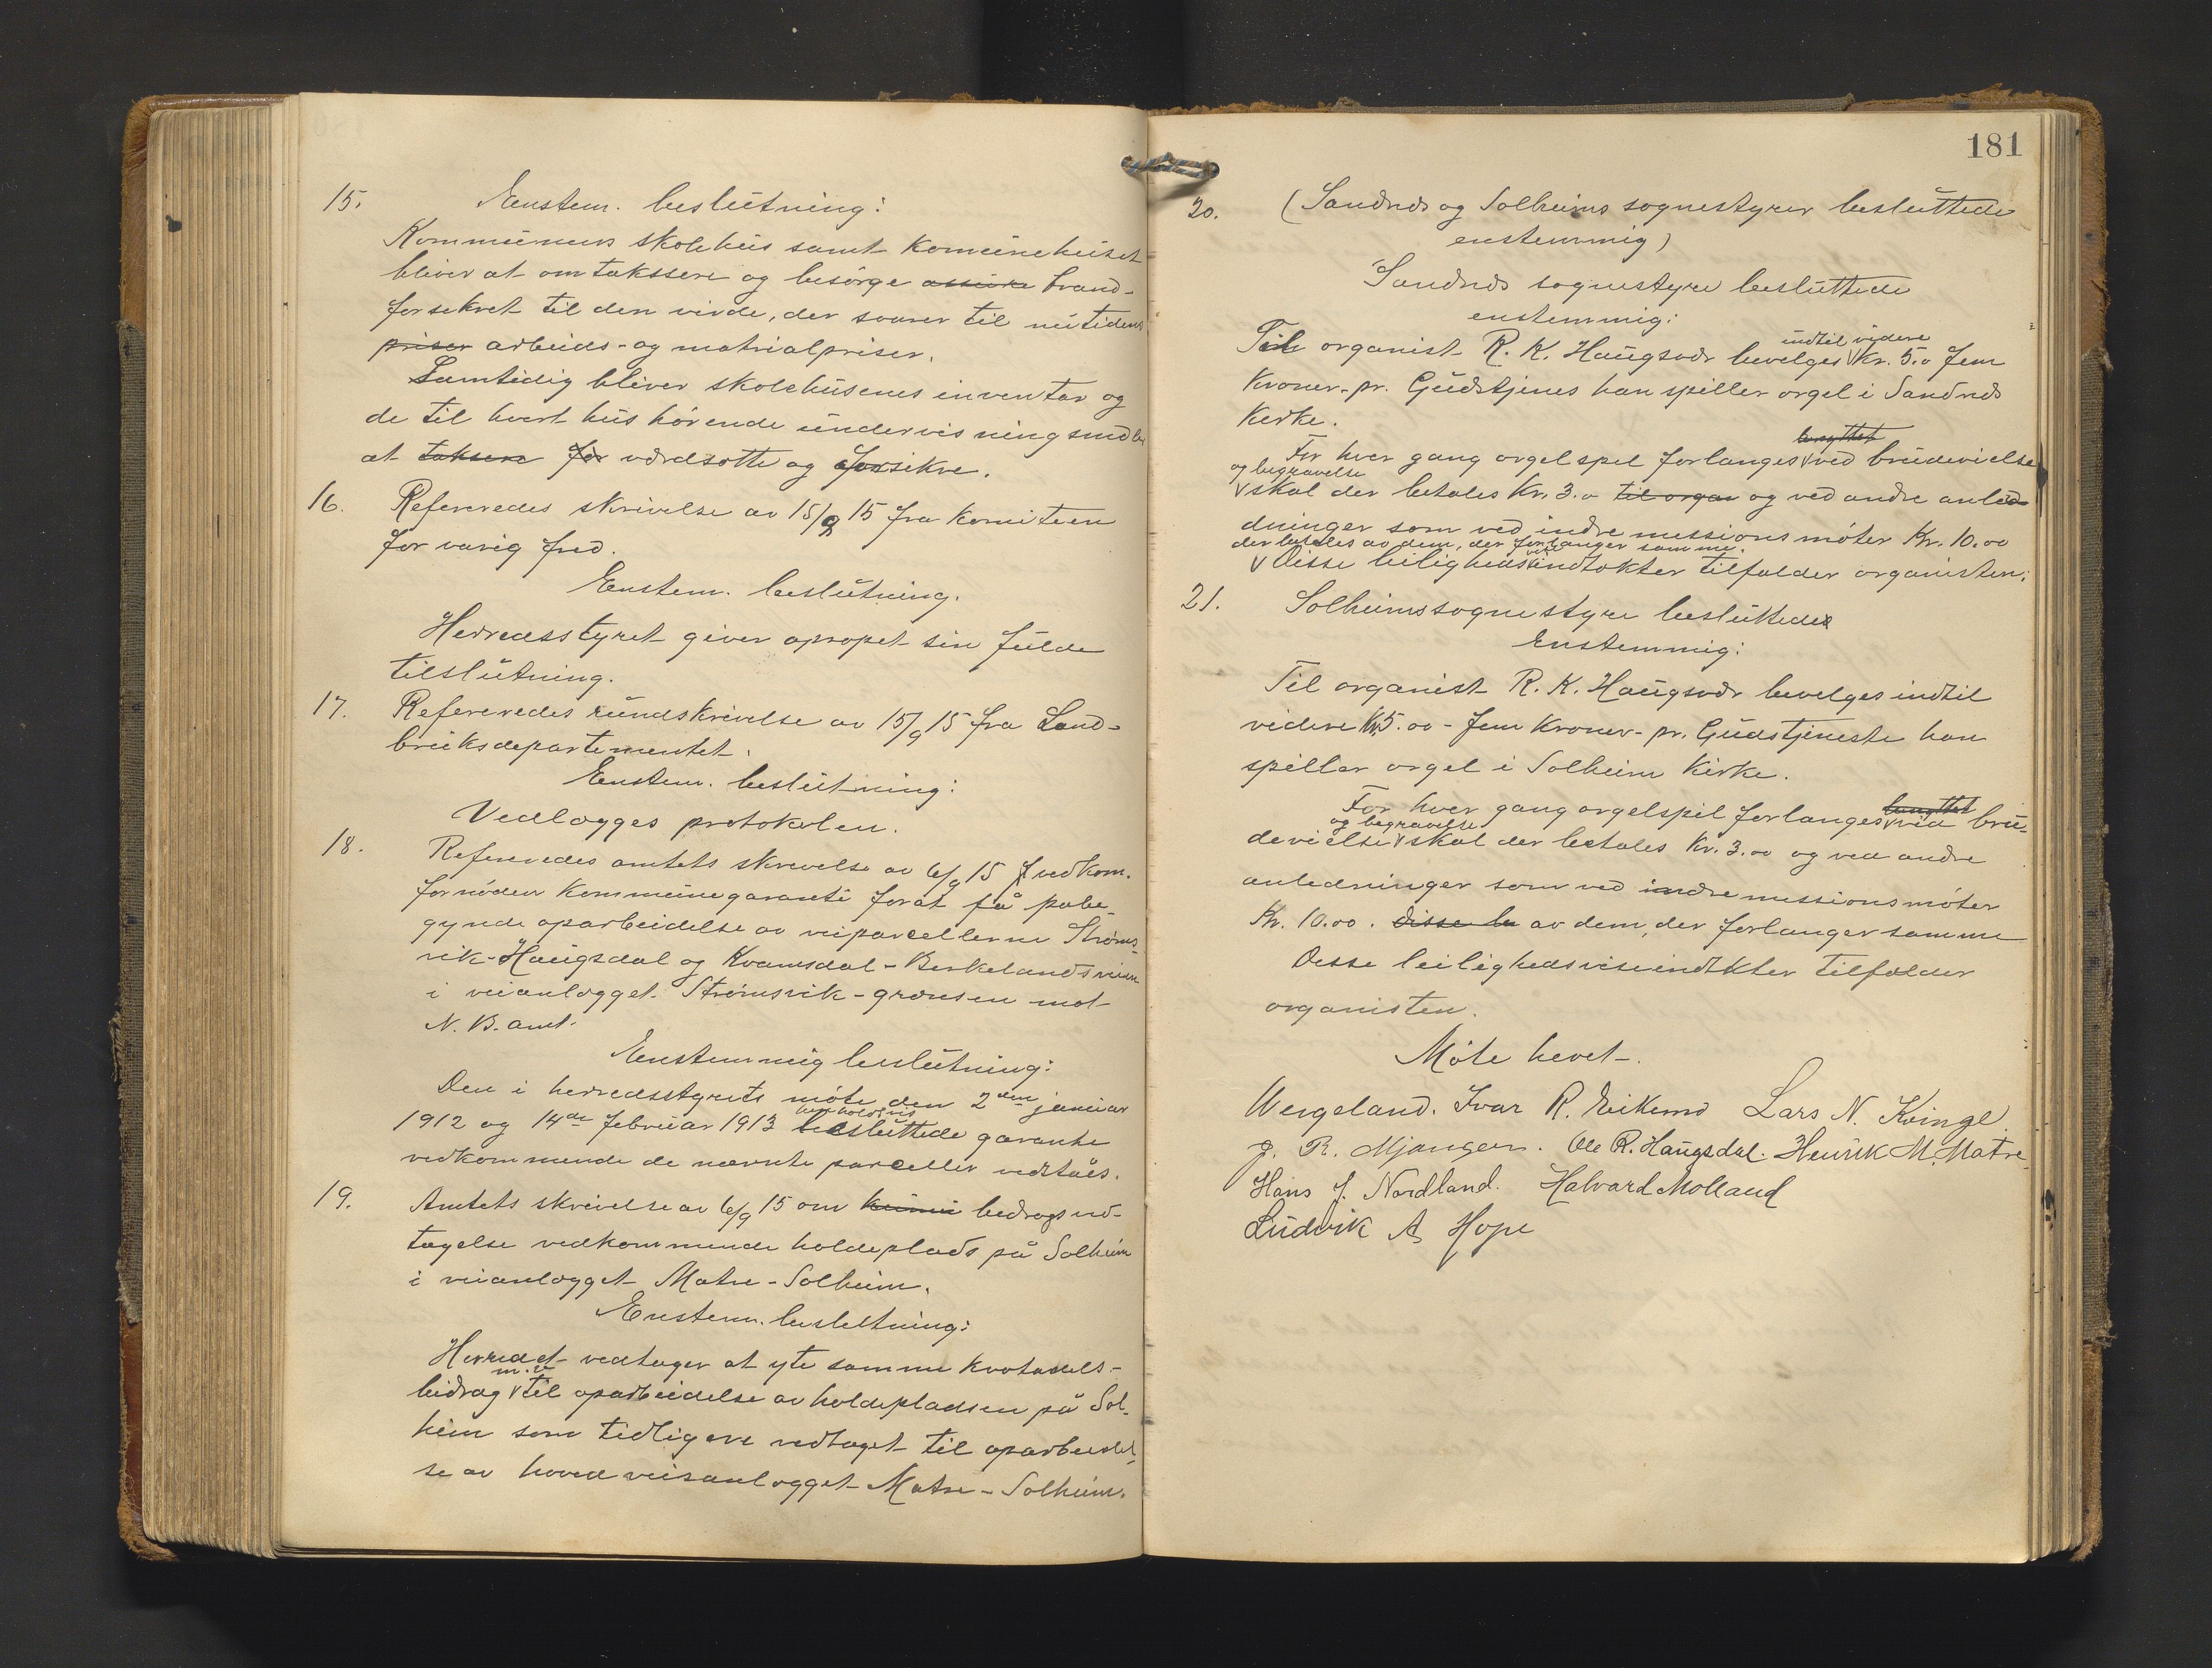 15. Enstem. beslutning:
Kommunens skolehus samt komunehuset
bliver at omtakssere og besørge assure brand-
forsekret til den virde, der svarer til nutidens
priser arbeids- og matrialpriser.
Samtidig bliver skolehusenes inventar og
de til hvert hus hørende undervisningsmidler
at taksere for værdsætte og forsikre.
16. Refereredes skrivelse av 15/9 15 fra komiteen
for varig fred.
Enstem. beslutning.
Herredsstyret giver opropet sin fulde
tilslutning.
17. Refereredes rundskrivelse av 15/9 15 fra Land-
bruksdepartementet.
Enstem. beslutning:
Vedlægges protokolen.
18. Refereredes amtets skrivelse av 6/9 15 vedkom.
fornøden kommunegaranti forat få påbe-
gynde oparbeidelse av veiparcellerne Strøms-
vik-Haugsdal og Kvamsdal-Birkelandsveien
i veianlægget Strømsvik-grænsen mot
N. B. amt.
Enstemmig beslutning:
Den i herredsstyrets møte den 2den januar
1912 og 14de februar 1913 henholdsvis besluttede garante
vedkommende de nævnte parceller vedtaes.
19. Amtets skrivelse av 6/9 15 om bedragsved-
tagelse vedkommende holdeplads på Solheim
i veianlægget Matre-Solheim.
Enstem. beslutning:
Herredet vedtager at yte samme kvotadels-
bidrag m.v. til oparbeidelse av holdepladsen på Sol-
heim som tidligere vedtaget til oparbeidel-
se av hovedveisanlægget Matre-Solheim.
181
20. (Sandnes og Solheims sognestyrer besluttede
enstemmig)
Sandnes sognestyre besluttede
enstemmig:
Til organist R. K. Haugsvær bevelges indtil videre kr. 5.00 fem
kroner pr. Gudstjenes han spiller orgel i Sandnes
Kirke.
For hver gang orgelspel forlanges benyttet ved brudevielse
og begravelse skal der betales Kr. 3.00 til organ og ved andre anled-
dninger som ved indre missionsmøter Kr. 10.00
der betales av dem, der forlanger samme.
Disse leilighedsvise indtækter tilfalder organisten.
21. Solheimssognestyre besluttede
Enstemmig:
Til organist R. K. Haugsvær bevelges indtil
videre Kr. 5.00 - fem kroner - pr. Gudstjeneste han
spiller orgel i Solheim Kirke.
For hver gang orgelspil forlanges benyttet ved bru-
devielse og begravelse skal der betales Kr. 3.00 og ved andre
anledninger som ved indre missionsmøter
Kr. 10.00. Disse be av dem, der forlanger samme
Desse leilighedsviseindtkter tilfalder
organisten.
Møte hevet.
Wergeland. Ivar R. Eikemo Lars N. Kvinge.
J. R. Mjanger. Ole R. Haugsdal. Henrik M. Matre
Hans J. Nordland. Halvard Molland
Ludvik A Hope